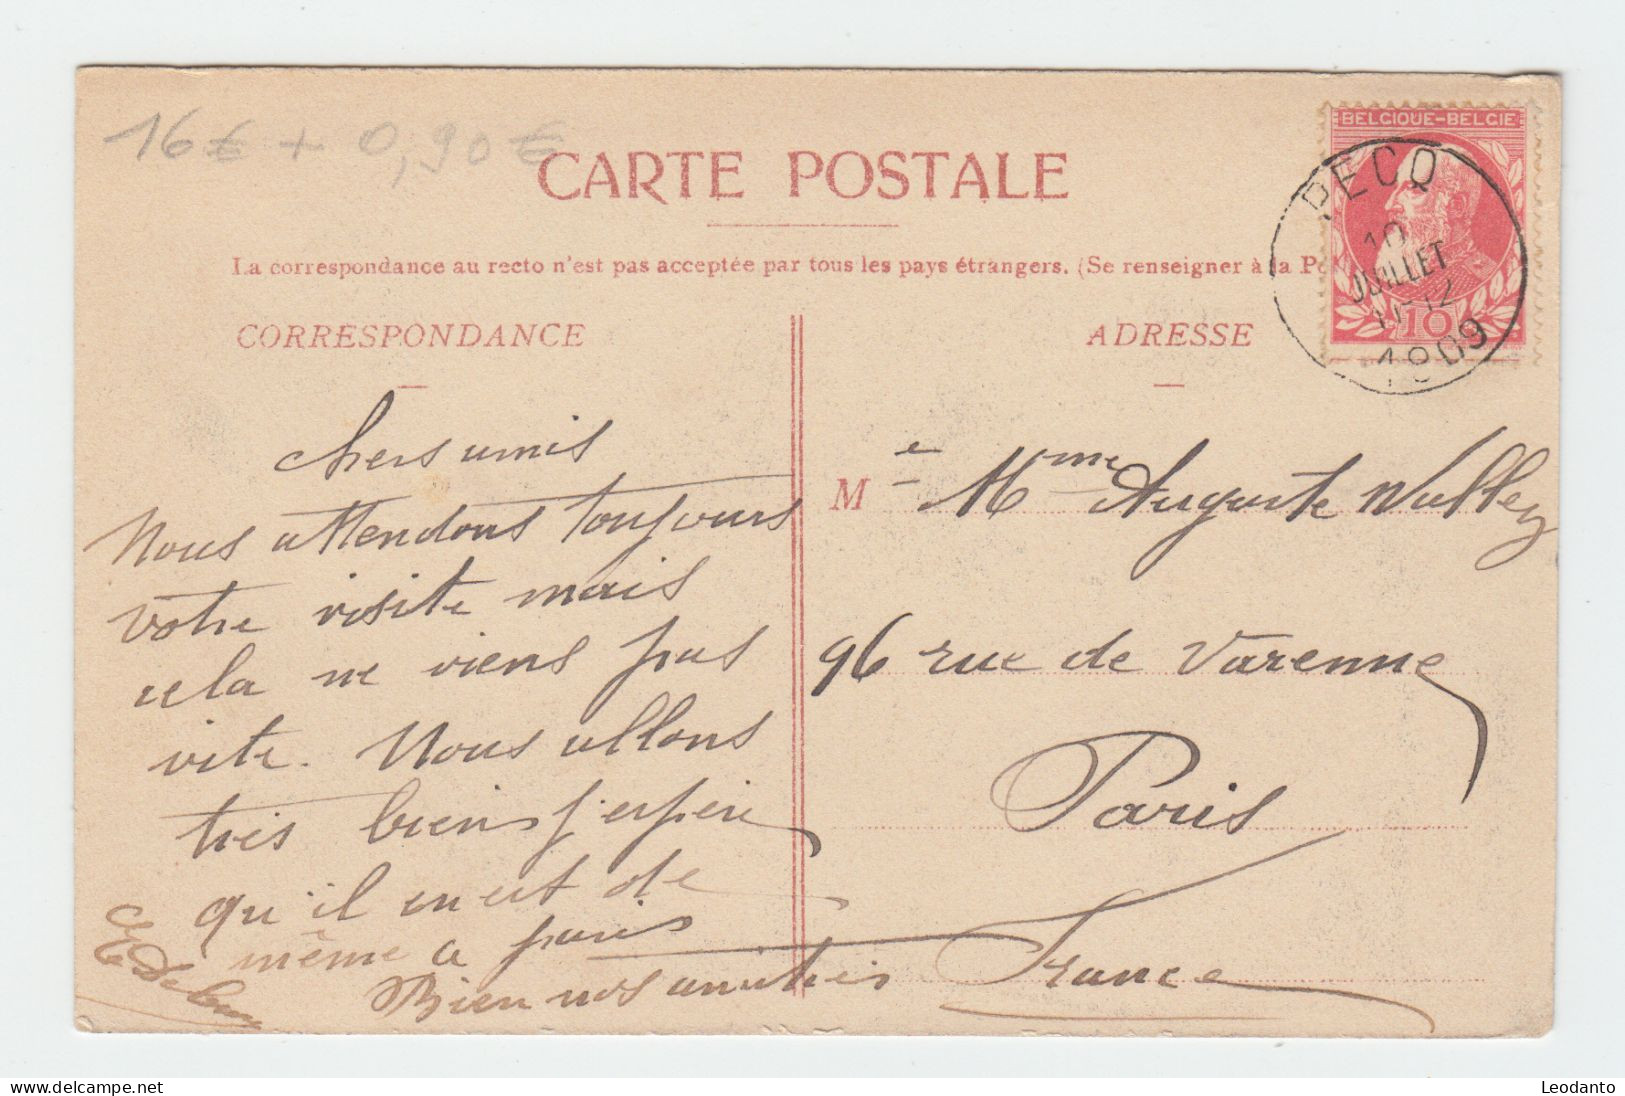 16€ + 0,90€
CARTE POSTALE
BELGIQUE-BELGIE
10
PECQ
10
JUILLET
11-12
1909
La correspondance au recto n'est pas acceptée par tous les pays étrangers. (Se renseigner à la Po
CORRESPONDANCE
chers amis
Nous attendons toujours
votre visite mais
cela ne viens pas
vite. Nous allons
très bien j'espère
qu'il en est de
même a paris
Bien nos amitiés
ADRESSE
M e Mme Auguste Walley
96 rue de Varenne
Paris
France
Leodanto